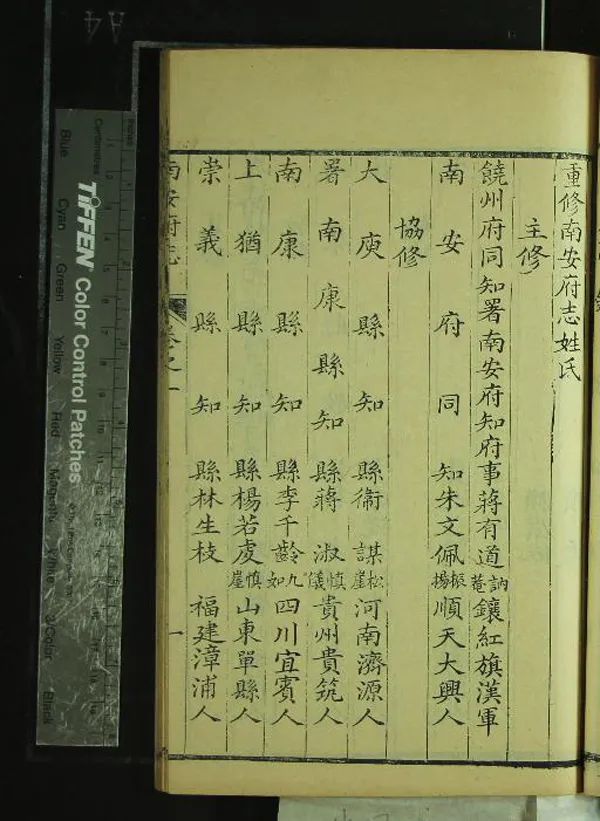 重修南安府志姓氏
主修
饒州府同知署南安府知府事蔣有道訥菴鑲紅旗漢軍
南安府同知朱文佩振揚順天大興人
協修
大庾縣知縣衛謀松崖河南濟源人
署南康縣知縣蔣淑慎儀貴州貴筑人
南康縣知縣李千齡九如四川宜賓人
上猶縣知縣楊若虔慎崖山東單縣人
崇義縣知縣林生枝福建漳浦人
南安府志
卷之一
一
TIFFEN Color Control Patches
Centimetres
Inches
Blue
Cyan
Green
Yellow
Red
Magenta
White
3/Color
Black
A4